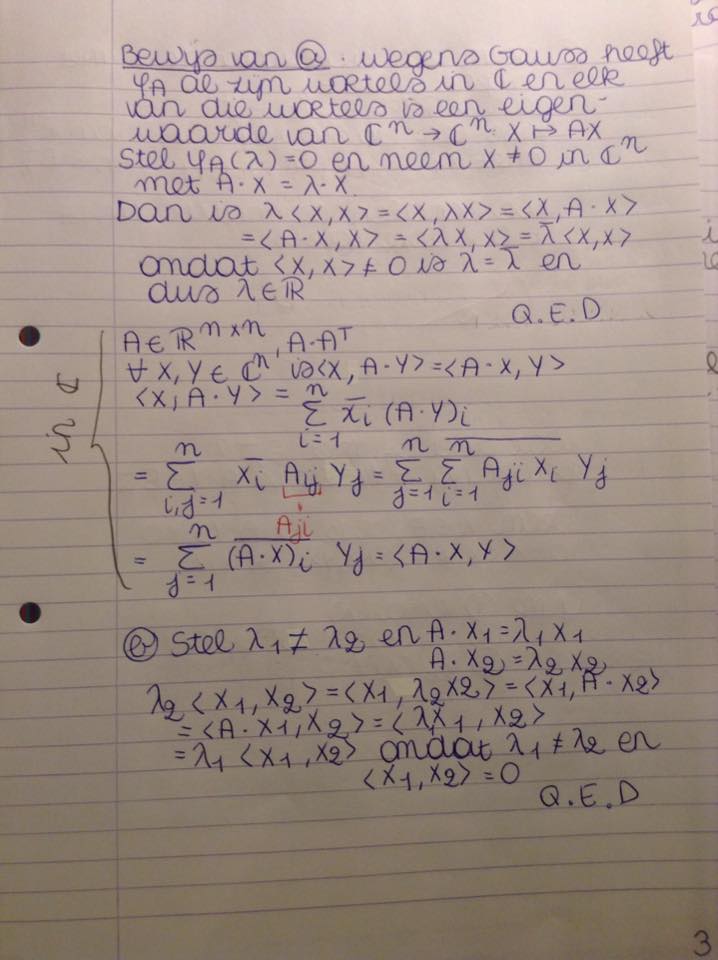 Bewijs van ⓐ. wegens Gauss heeft
φ_A al zijn wortels in ℂ en elk
van die wortels is een eigen-
waarde van ℂⁿ → ℂⁿ: X ↦ AX
Stel φ_A(λ) = 0 en neem X ≠ 0 in ℂⁿ
met A·X = λ·X
Dan is λ<X,X> = <X,λX> = <X,A·X>
= <A·X,X> = <λX,X> = λ̄<X,X>
omdat <X,X> ≠ 0 is λ = λ̄ en
dus λ ∈ ℝ
Q.E.D
in ℂ
A ∈ ℝ^{n×n}, A·Aᵀ
∀ X,Y ∈ ℂⁿ is <X, A·Y> = <A·X, Y>
<X, A·Y> = \sum_{i=1}^{n} \overline{X_i} (A·Y)_i
= \sum_{i,j=1}^{n} \overline{X_i} A_{ij} Y_j = \sum_{j=1}^{n} \overline{\sum_{i=1}^{n} A_{ji} X_i} Y_j
A_{ji}
= \sum_{j=1}^{n} \overline{(A·X)_i} Y_j = <A·X, Y>
ⓑ Stel λ₁ ≠ λ₂ en A·X₁ = λ₁X₁
A·X₂ = λ₂X₂
λ₂<X₁,X₂> = <X₁,λ₂X₂> = <X₁,A·X₂>
= <A·X₁,X₂> = <λX₁,X₂>
= λ₁<X₁,X₂> omdat λ₁ ≠ λ₂ en
<X₁,X₂> = 0
Q.E.D
3